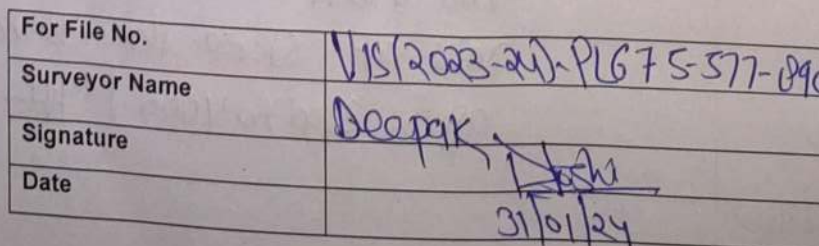 For File No. VIS(2023-24)-PL675-577-890
Surveyor Name Deepak Joshi
Signature
Date 31/01/24